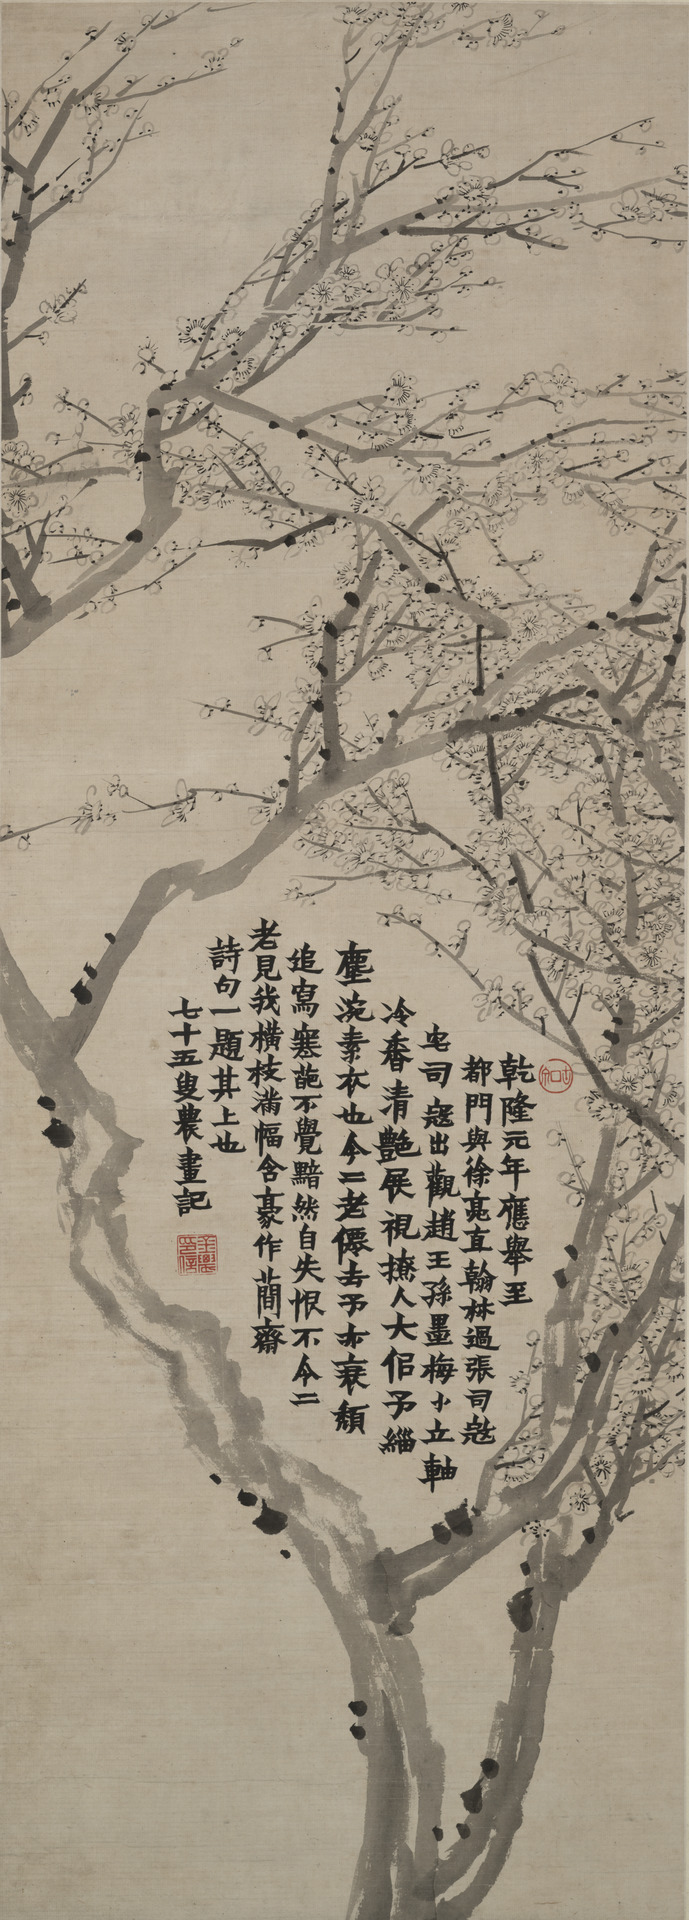 乾隆元年應舉至
都門與徐亮直翰林過張司寇
宅司寇出觀趙王孫墨梅小立軸
冷香清艷展視撩人大佀予緇
塵涴素衣也今二老僊去予亦衰頽
追寫寒葩不覺黯然自失恨不令二
老見我橫枝滿幅含豪作蕳齋
詩句一題其上也
七十五叟農畫記